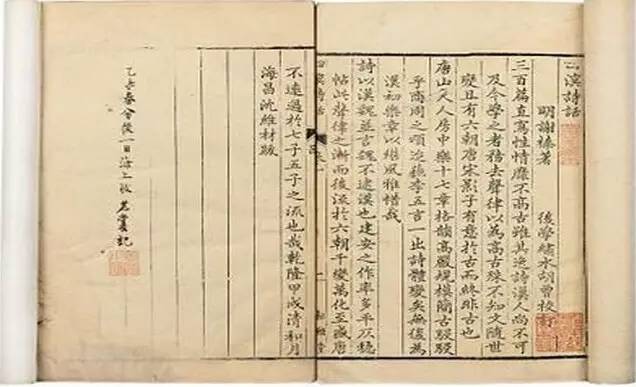 四溟詩話
明謝榛著 後學繡水胡曾校訂
三百篇直寫性情靡不高古雖其逸詩漢人尚不可
及今學之者務去聲律以為高古殊不知文隨世
變且有六朝唐宋影子有意於古而終非古也
唐山夫人房中樂十七章格韻高嚴規模簡古駸駸
乎商周之頌迨蘇李五言一出詩體變矣無復為
漢初樂章以繼風雅惜哉
詩以漢魏並言魏不逮漢也建安之作率多平仄穩
帖此聲律之漸而後流於六朝千變萬化至盛唐
四溟詩話
不遠過於七子五子之流也哉乾隆甲戌清和月
海昌沈維材跋
春分後一日海上收 記